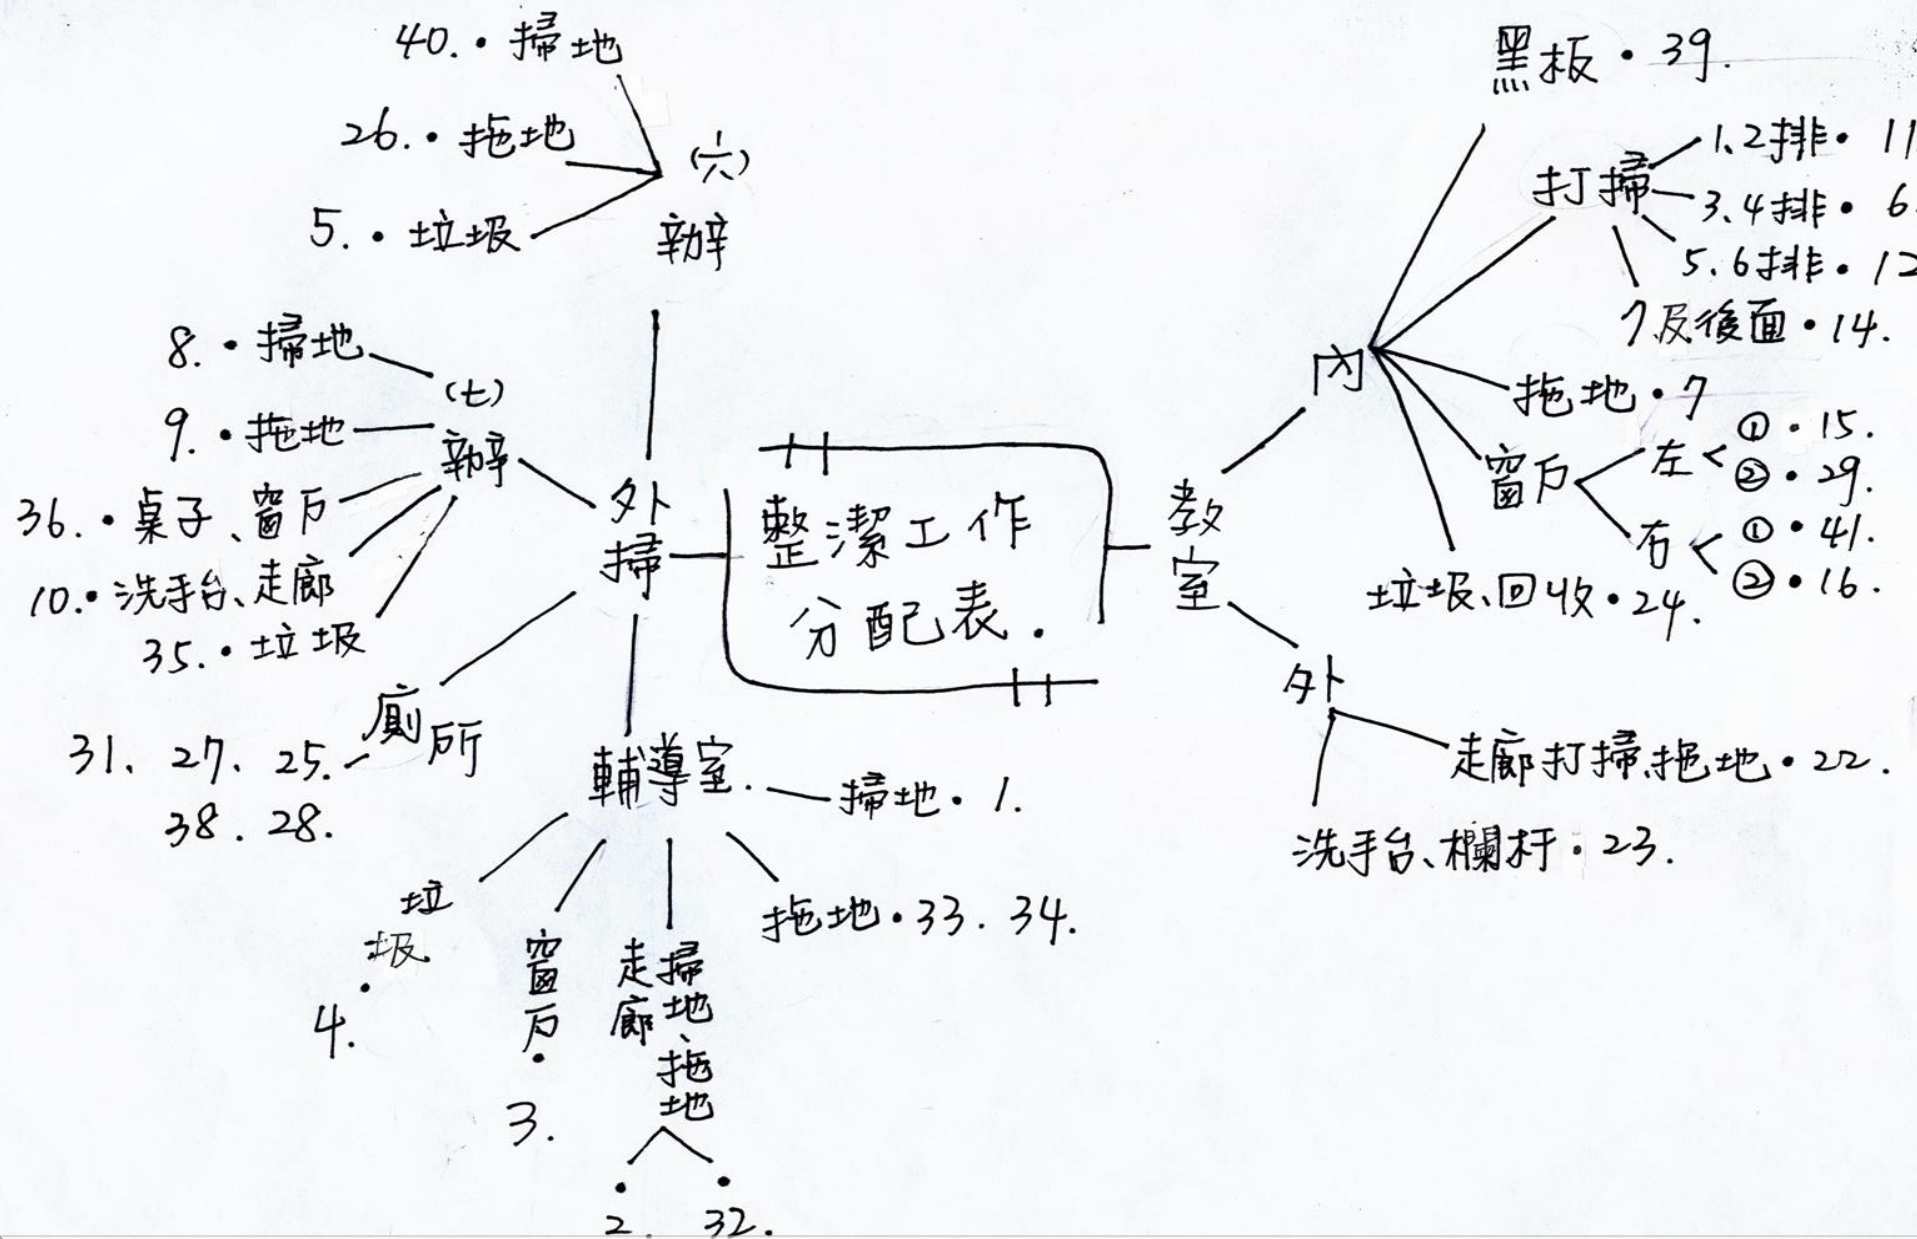 整潔工作
分配表.
外掃
(六)
辦
40.·掃地
26.·拖地
5.·垃圾
(七)
辦
8.·掃地
9.·拖地
36.·桌子、窗戶
10.·洗手台、走廊
35.·垃圾
廁所
31、27、25.
38.28.
輔導室.
掃地·1.
拖地·33.34.
走廊
掃地、拖地
·2.
·32.
窗戶·3.
垃圾·4.
教室
內
黑板·39.
打掃
1、2排·11
3、4排·6.
5.6排·12
7及後面·14.
拖地·7
窗戶
左
①·15.
②·29.
右
①·41.
②·16.
垃圾、回收·24.
外
走廊打掃、拖地·22.
洗手台、欄杆·23.